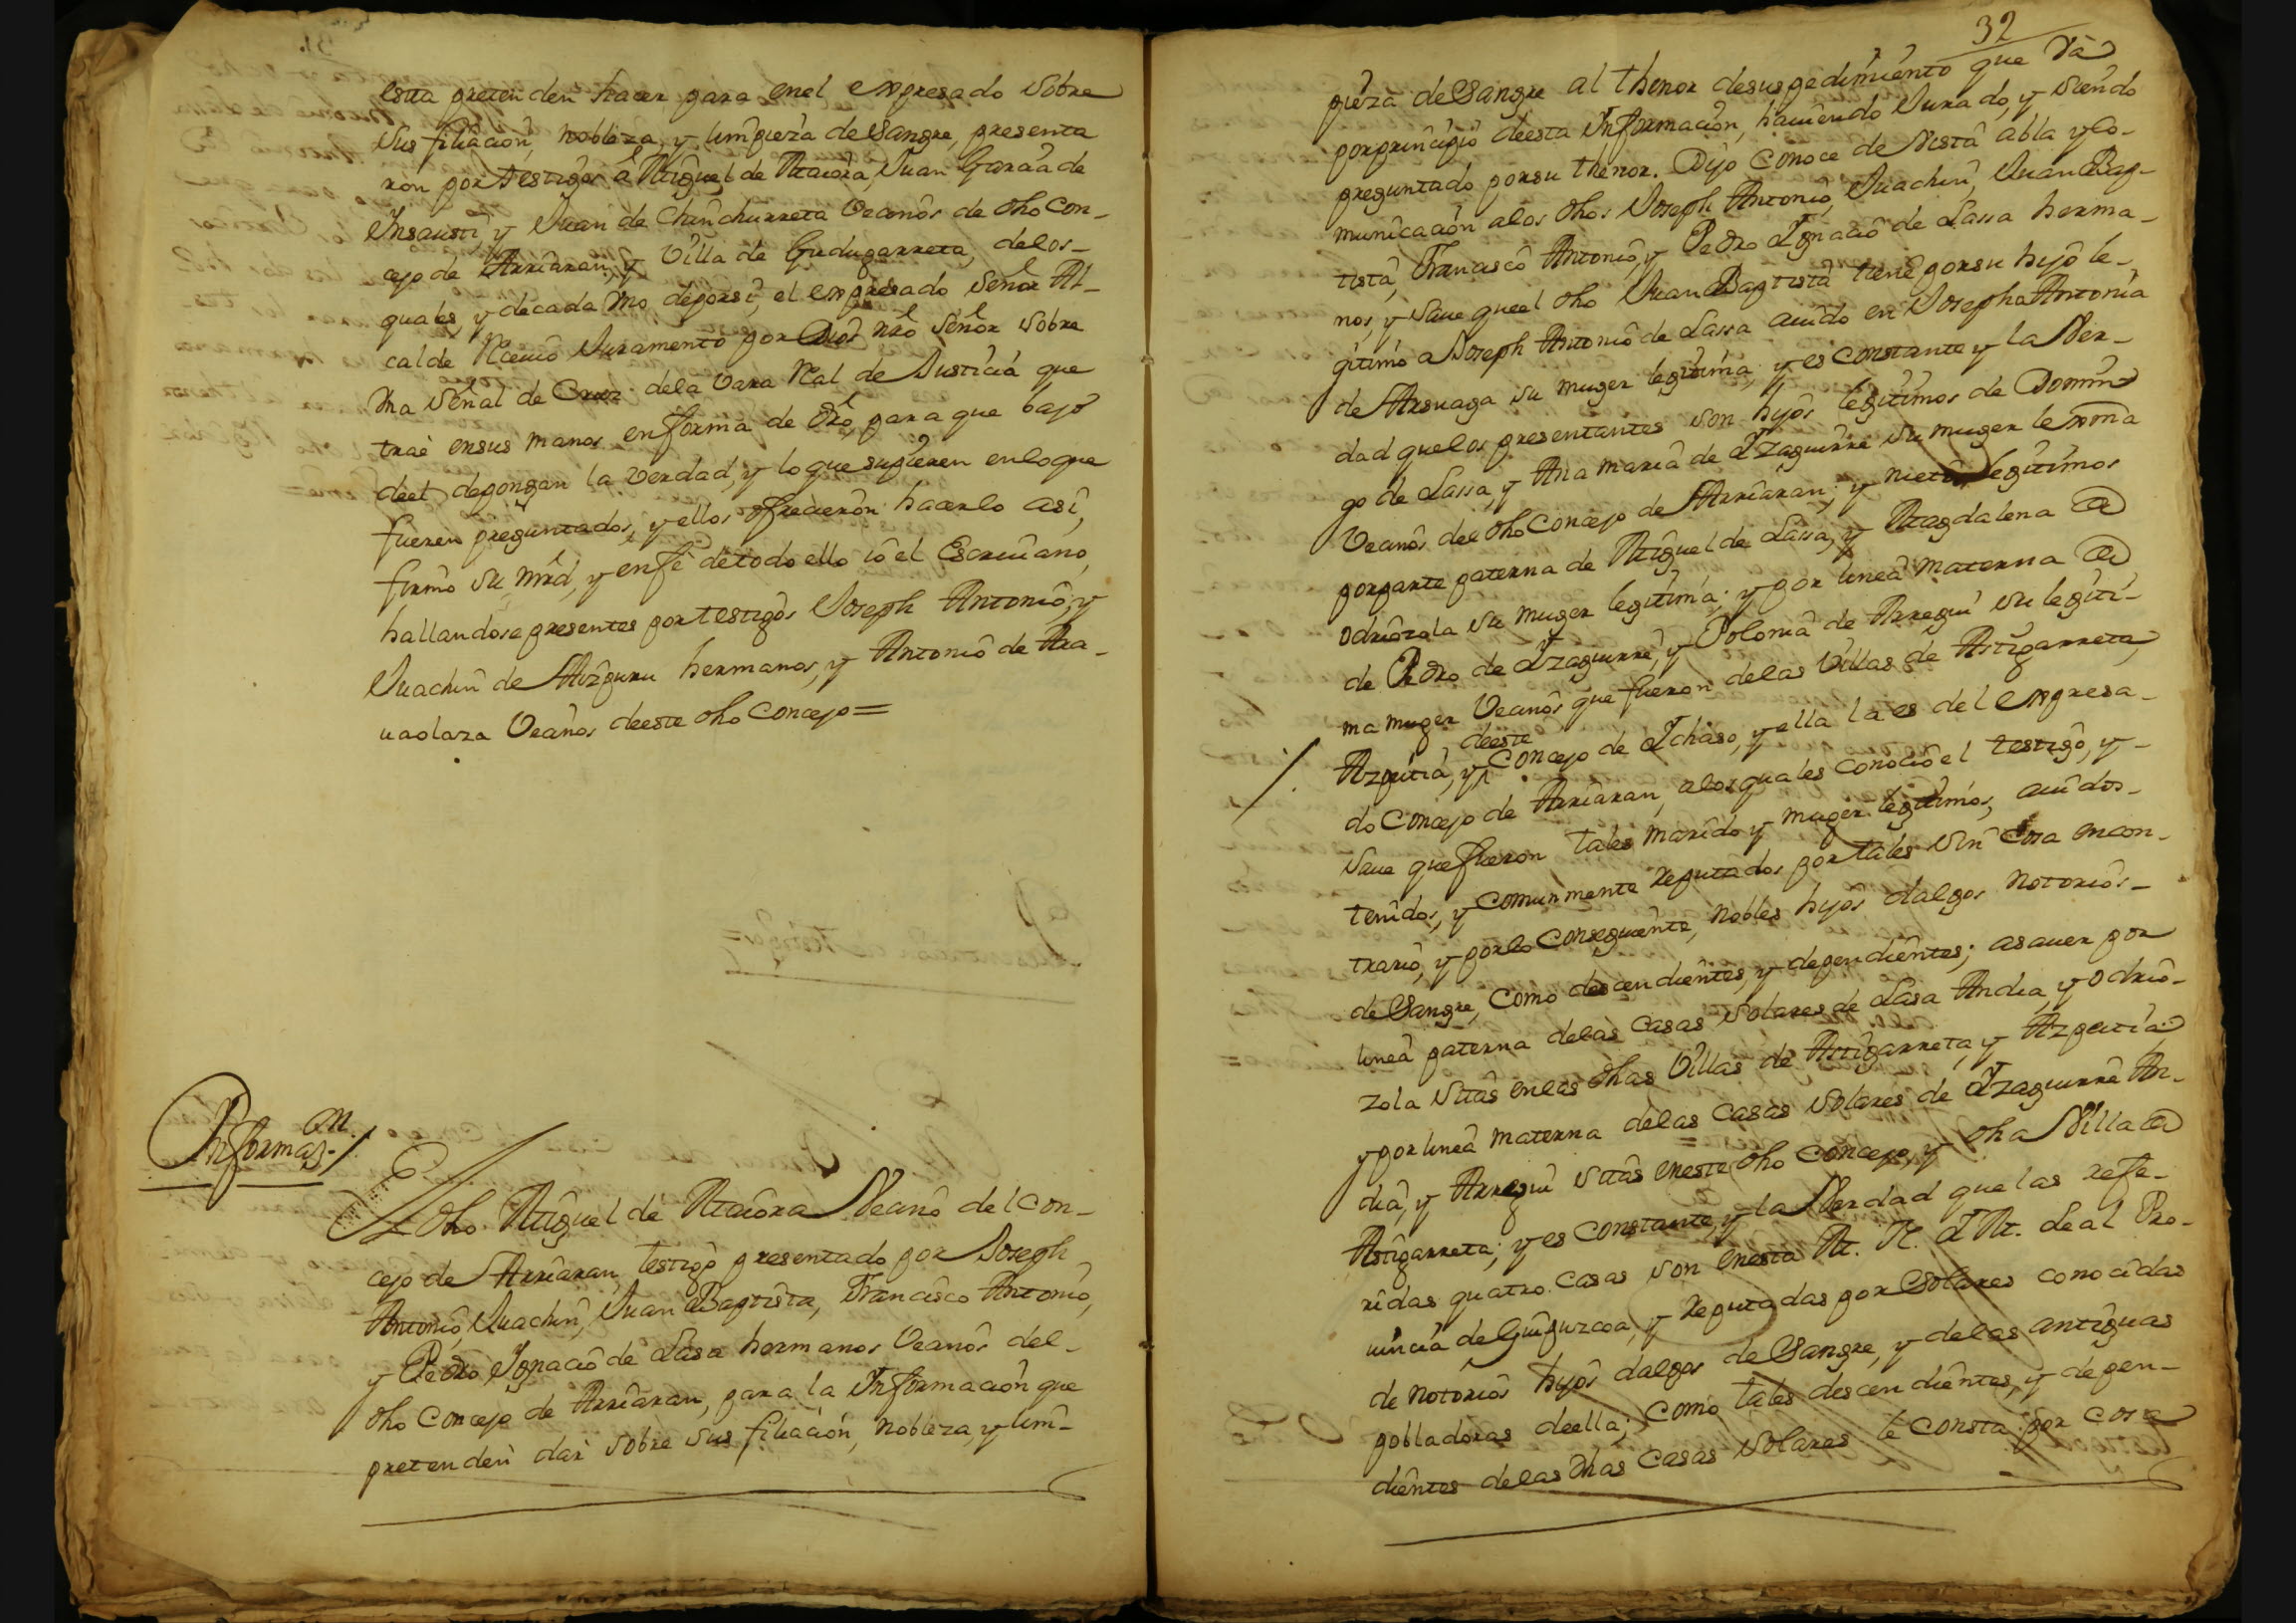 esta pretenden hacer para enel expresado sobre
sus filiación, nobleza, y limpieza de sangre, presenta
ron por testigos â Miguel de Maiora, Juan Garcia de
Insausti, y Juan de Chinchurreta Vecinôs de dho Con-
cejo de Arriaran, y Villa de Gudugarreta, delos-
quales, y de cada vno deporsi, el expresado Señor Al-
calde Rceuiô Juramento por Dios nrô Señor sobre
vna Señal de Cruz dela Vara Real de Justicia que
traê ensus manos en forma de dro, para que bajo
deel depongan la verdad, y lo que supieren enloque
fueren preguntados, y ellos ofrecierôn hacerlo así,
firmô su mrd, y enfê detodo ello iô el Escriuano,
hallandose presentes por testigôs Joseph Antoniô, y
Juachin de Aizpuru hermanos, y Antoniô de Ara-
uaolaza Vecinôs deeste dho Concejo =
Informaz.on /
El dho Miguel de Maiora Vecinô del Con-
cejo de Arriaran, testigô presentado por Joseph
Antoniô, Juachin, Juan Baptista, Franciscô Antoniô,
y Pedro Ignaciô de Lasa hermanos Vecinôs del-
dho Concejo de Arriaran, para la Informaciôn que
pretenden dar sobre sus filiación, nobleza, y lim-
32
pieza de Sangre al thenor desuspedimiento que và
por principiô deesta Informaciôn, hauiendo Jurado, y siendo
preguntado porsu thenor. Dijo conoce de vista abla y co-
municación alos dhos Joseph Antoniô, Juachin, Juan Bap-
tista, Franciscô Antoniô, y Pedro Ignaciô de Lassa herma-
nos, y saue queel dho Juan Baptista tiene porsu hijô le-
gitimô a Joseph Antoniô de Lassa auido en Josepha Antonia
de Arsuaga su muger legitima, y es constante y la Ver-
dad quelos presentantes son hijôs legitimos de Domin-
go de Lassa, y Ana maria de Yzaguirre su muger lexma
Vecinôs del dho Concejo de Arriaran; y nietos legitimos
porparte paterna de Miguel de Lassa, y Magdalena de
odriôzola su muger legitima; y por linea materna de
de Pedro de Yzaguirre, y Polonia de Arregui su legiti-
ma muger Vecinôs que fueron delas Villas de Astigarreta,
deeste
/. Azpeitia, y Concejo de Ychaso, y ella la es del expresa-
do Concejo de Arriaran, alosquales conociô el testigô, y-
saue que fueron tales marido y muger legitimôs, auidos-
tenidos, y comunmente Reputados por tales sin cosa encon-
trario, y porlo consequente, nobles hijôs dalgos notoriôs-
de Sangre, como descendientes, y dependientes; asauer por
linea paterna delas Casas Solares de Lasa Andia, y odriô-
zola sitas enlas dhas Villas de Astigarreta, y Azpeitia
y por linea materna delas casas solares de Yzaguirre An-
dia, y Arregui sitas eneste dho Concejo, y dha Villa de
Astigarreta; y es constante, y la Verdad que las refe-
ridas quatro casas son enesta M. N. Y M. Leal Pro-
uincia de Guipuzcoa, y Reputadas por Solares conocidas
de notoriôs hijôs dalgos de Sangre, y delas antiguas
pobladoras deella; como tales descendientes, y depen-
dientes delas dhas Casas Solares le consta por cosa